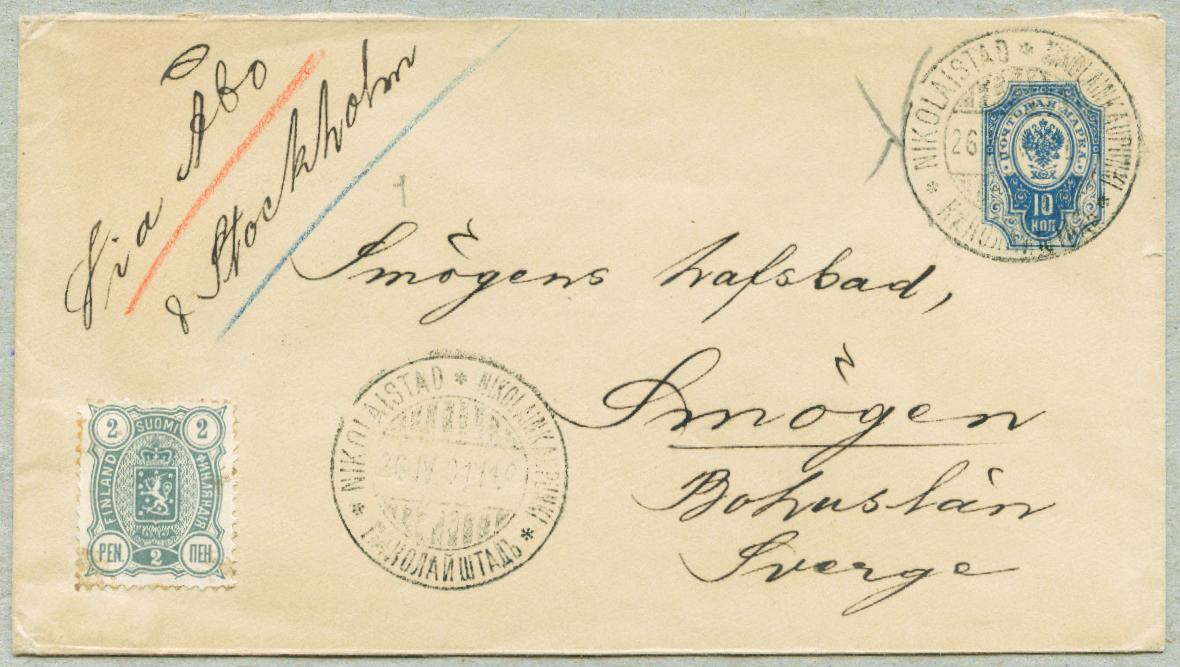 Via Åbo
& Stockholm
NIKOLAISTAD * NIKOLAINKAUPUNKI *
26
ПОЧТОВАЯ МАРКА.
10
КОП
Smögens hafsbad,
Smögen
Bohuslän
Sverge
NIKOLAISTAD * NIKOLAINKAUPUNKI * НИКОЛАЙШТАДЪ *
26 IV 01 11
2 SUOMI 2
FINLAND ФИНЛЯНДІЯ
PEN. 2 ПЕН.